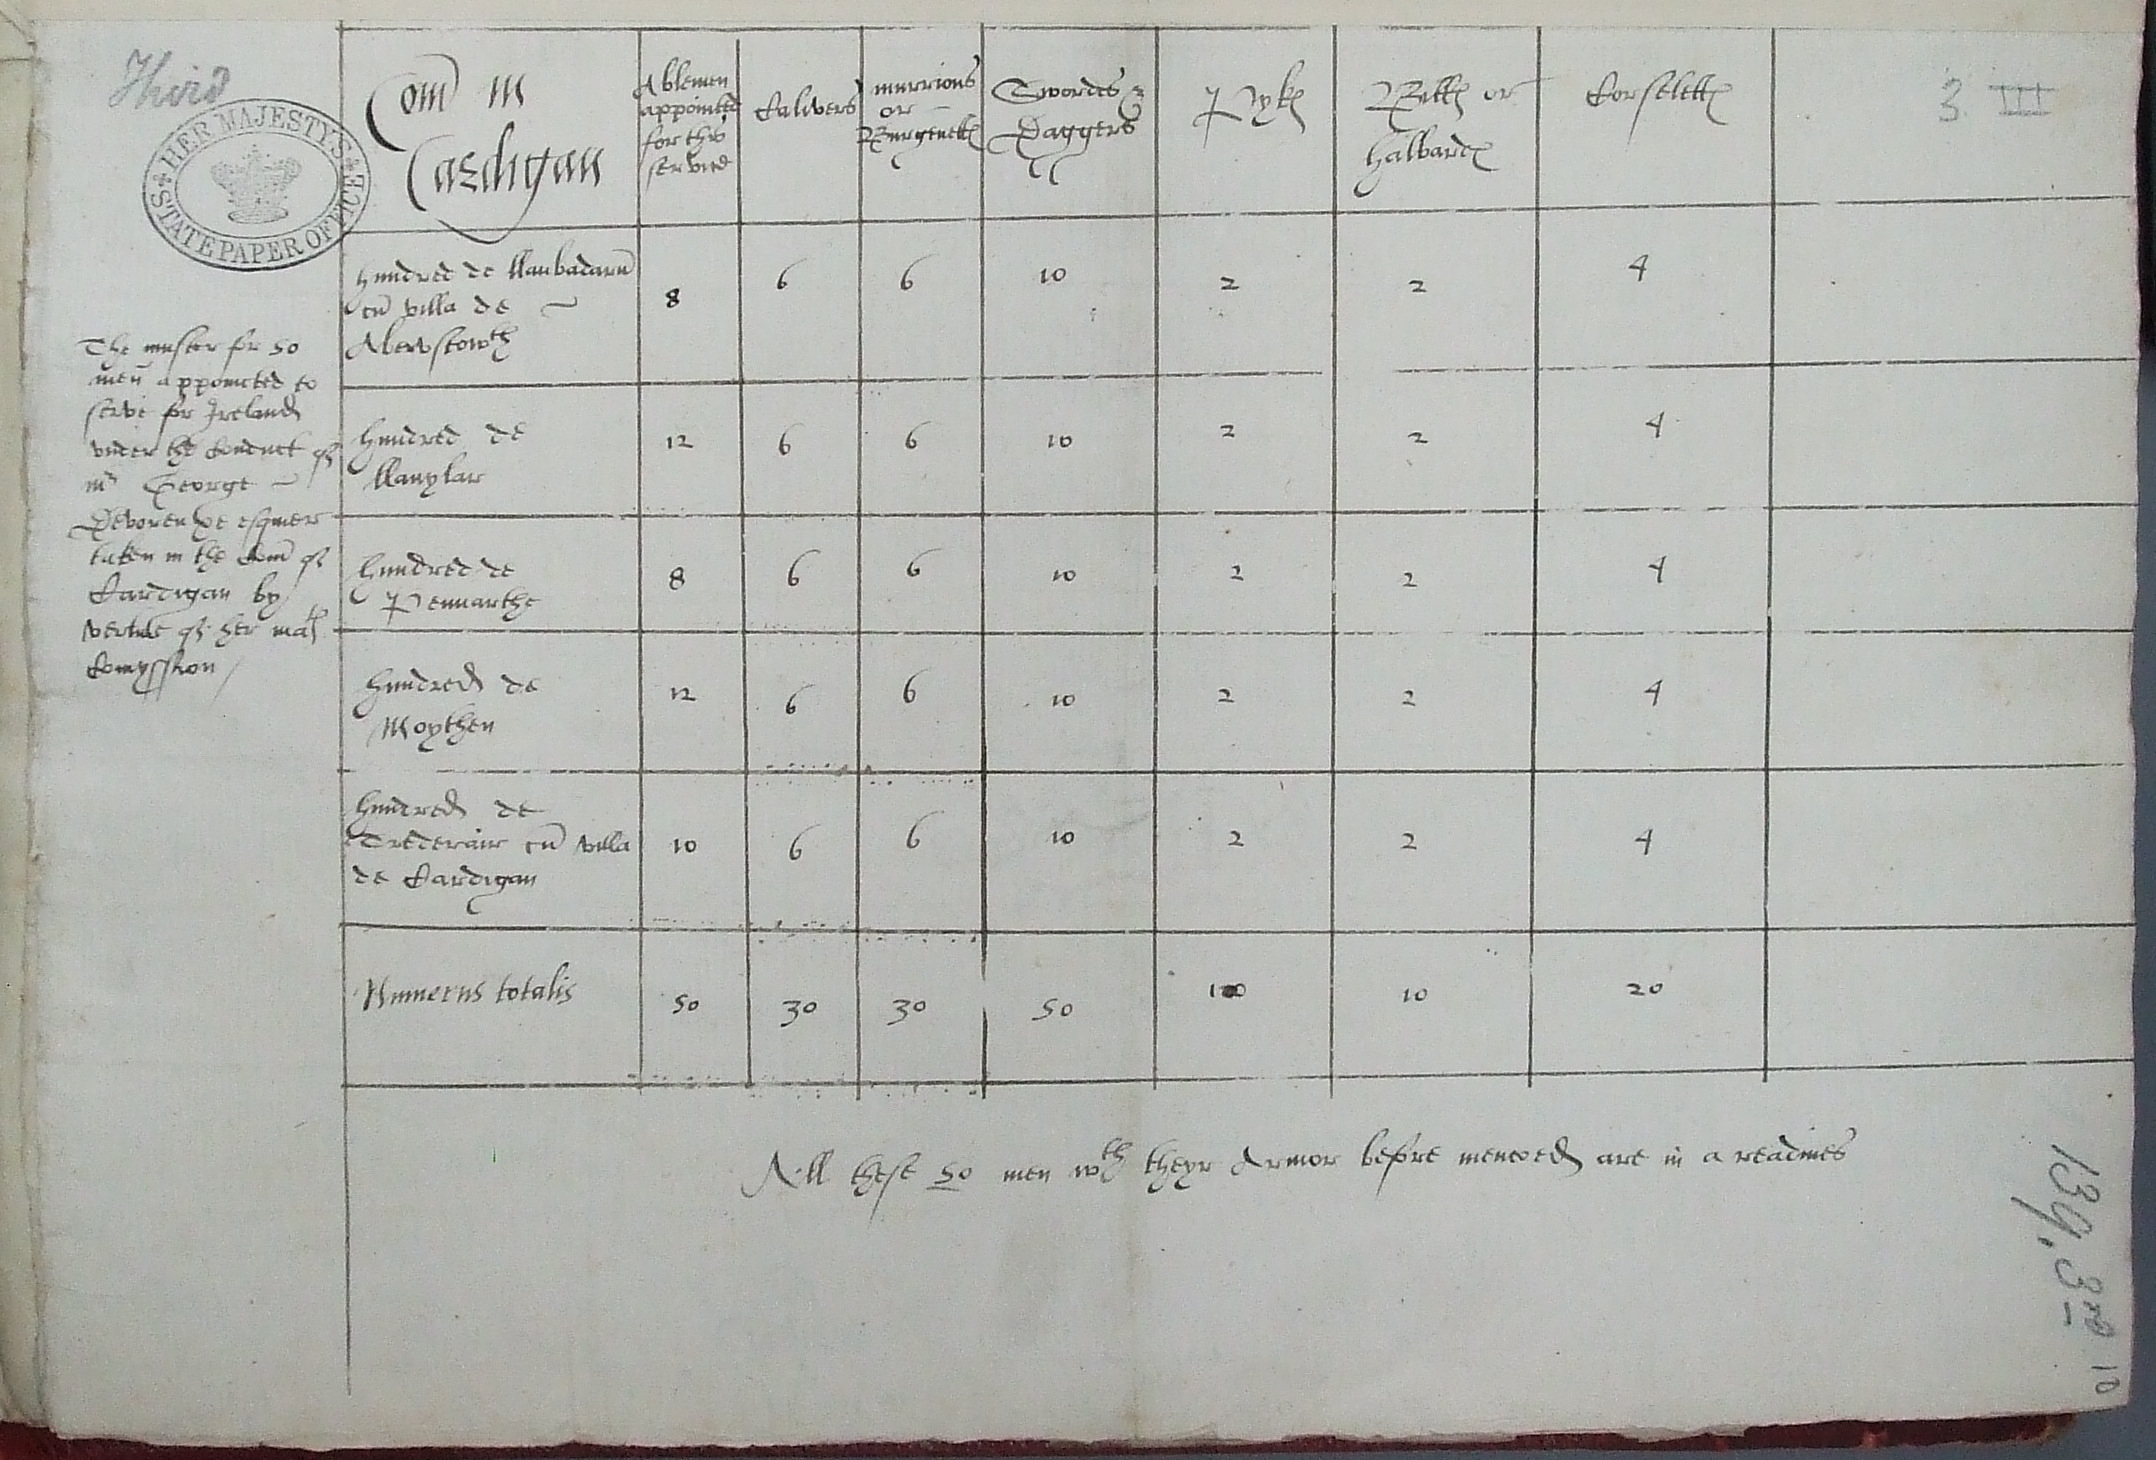 Third
HER MAJESTY'S STATE PAPER OFFICE
3 III
The muster for 50
men appoincted to
serve for Ireland
vnder the conduct of
mr George
Devorenxe esquier
taken in the Com of
Cardigan by
vertue of her matis
Comyssion /
Com in Cardigan | Ablemen appointed for this service | Calivers | murrions or Burgenettes | Swordes & Daggers | Pykes | Billes or halbardes | Corselettes
hundred de llanbadarn cu villa de Aberystowth | 8 | 6 | 6 | 10 | 2 | 2 | 4
hundred de llanylar | 12 | 6 | 6 | 10 | 2 | 2 | 4
hundred de Pennarthe | 8 | 6 | 6 | 10 | 2 | 2 | 4
hundred de Moythen | 12 | 6 | 6 | 10 | 2 | 2 | 4
hundred de Trederair cu villa de Cardigan | 10 | 6 | 6 | 10 | 2 | 2 | 4
Numerus totalis | 50 | 30 | 30 | 50 | 10 | 10 | 20
All these 50 men wth theyr Armor before mencoed are in a readines
139. 3rd
10